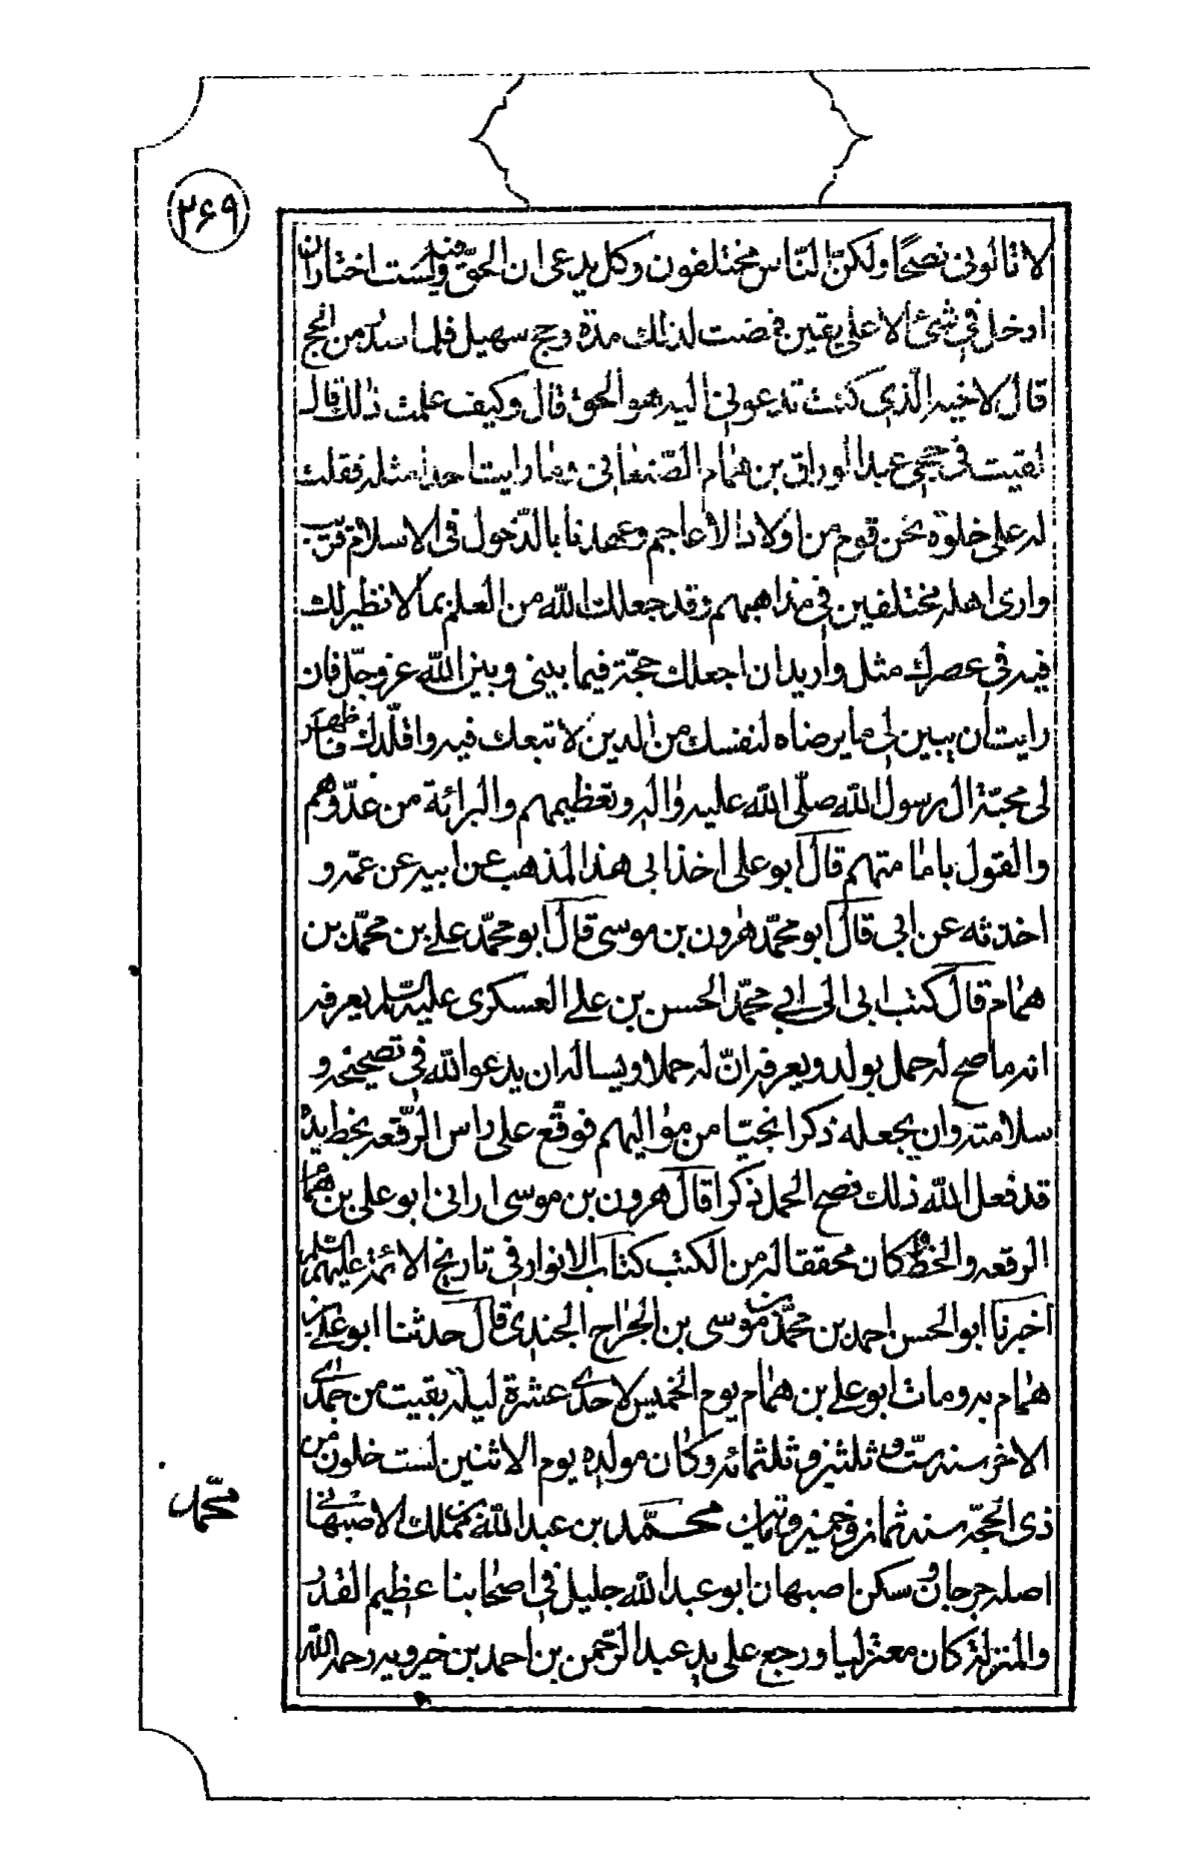 ۲۶۹
لا تالونی نصحًا ولكنّ النّاس مختلفون وكل يدعى ان الحقّ فيه ولست اختار ان
ادخل فی شئ الا على يقين فمضت لذلك مدة وحج سهيل فلما من الحج
قال لاخيه الّذى كنت تدعونى اليه هو الحق قال وكيف علمت ذلك قال
لقيت فى حجى عبد الرزاق بن همام الصّنعانى وما رايت احدا مثله فقلت
له على خلوة نحن قوم من اولاد الاعاجم وعهدنا بالدّخول فى الاسلام قريب
وارى اهله مختلفين فى مذاهبهم وقد جعلك اللّه من العلم بما لا نظير لك
فيه فى عصرك مثل واريد ان اجعلك حجّة فيما بينى وبين اللّه عز وجلّ فان
رايت ان يبين لى ما يرضاه لنفسك من الدين لا تبعك فيه واقلّدك فاظهر
لى محبّة ال رسول اللّه صلّى اللّه عليه واله وتعظيمهم والبرائة من عدّوهم
والقول بامامتهم قال ابو على اخذ ابى هذا المذهب عن ابيه عن عمّه و
اخذته عن ابى قال ابو محمّد هرون بن موسى قال ابو محمّد على بن محمّد بن
همام قال كتب ابى الى ابى محمّد الحسن بن على العسكرى عليه السّلم يعرفه
انه ما صح له حمل بولد ويعرفه انّ له حملا ويساله ان يدعو اللّه فى تصحيحه و
سلامته وان يجعله ذكرا نجيّبا من مواليهم فوقّع على راس الرّقعه بخط يده
قد فعل اللّه ذلك فصح الحمل ذكرا قال هرون بن موسى ارانى ابو على بن همام
الرقعه والخط كان محققا له من الكتب كتاب الانوار فى تاريخ الائمة عليهم السلم
اخبرنا ابو الحسن احمد بن محمّد بن موسى بن الجراح الجندى قال حدثنا ابو على بن
همام به ومات ابو على بن همام يوم الخميس لاحدى عشرة ليلة بقيت من جمدى
الاخر سنه ستّ وثلثين وثلثمائه وكان مولده يوم الاثنين لست خلون من
ذى الحجّه سنه ثمان وخمسين ومأتين محمّد بن عبد اللّه بن مملك الاصبهانى
اصله جرجان وسكن اصبهان ابو عبد اللّه جليل فى اصحابنا عظيم القدر
والمنزلة كان معتزليا ورجع على يد عبد الرّحمن بن احمد بن خيرويه رحمه اللّه
محمّد